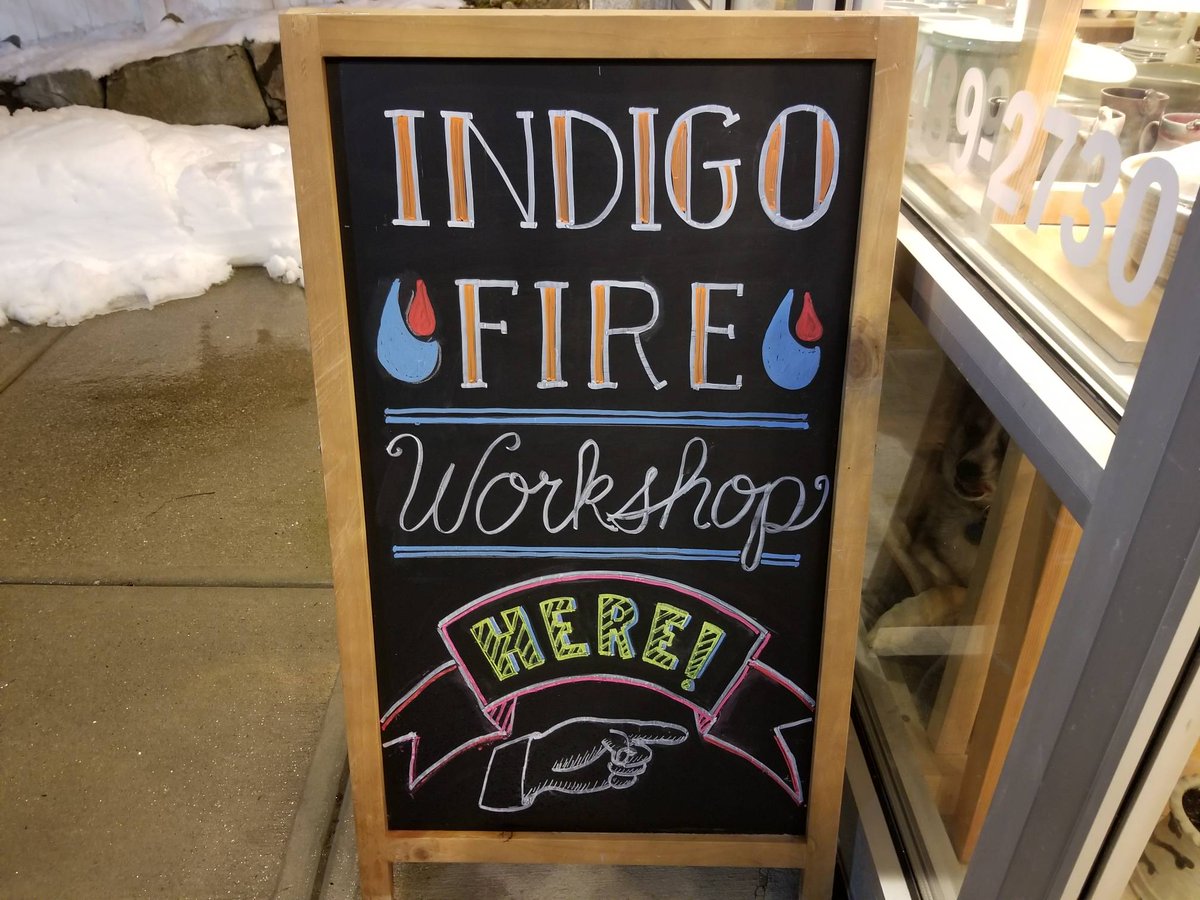 INDIGO
FIRE
Workshop
HERE!
9-2730